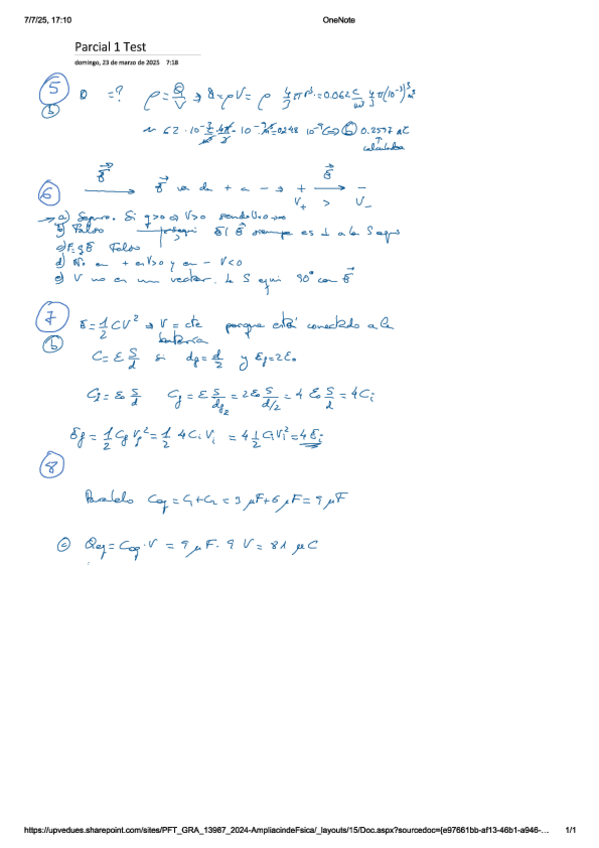 7/7/25, 17:10 OneNote
Parcial 1 Test
domingo, 23 de marzo de 2025 7:18
5 Q =? ρ = Q/V → Q = ρV = ρ 4/3 π r³ = 0.062 C/m³ 4/3 π (10⁻³)³ m³
b
6 E⃗ E⃗ va de + a - → + E⃗ -
V₊ > V₋
→ a) Si q>0 V>0
b) Falso E⃗ siempre es ⊥ a la S equi
c) F = qE⃗ Falso
d) No en + V>0 y en - V<0
e) V no es un vector. La S equi 90° con E⃗
7 E = 1/2 CV² → V = cte porque está conectado a la batería
b
C = ε S/d si df = d/2 y εf = 2ε₀
Ci = ε₀ S/d Cf = ε S/df = 2ε₀ S/d/2 = 4 ε₀ S/d = 4Ci
Ef = 1/2 Cf Vf² = 1/2 4Ci Vi = 4 1/2 Ci Vi² = 4Ei
8
Paralelo Ceq = C₁+C₂ = 3 μF+6 μF = 9 μF
c Qeq = Ceq·V = 9 μF · 9 V = 81 μC
https://upvedues.sharepoint.com/sites/PFT_GRA_13987_2024-AmpliacindeFsica/_layouts/15/Doc.aspx?sourcedoc={e97661bb-af13-46b1-a946-... 1/1